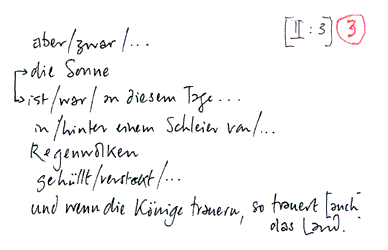 [II : 3] 3
aber/zwar/...
die Sonne
ist/war/an diesem Tage...
in/hinter einem Schleier von/...
Regenwolken
gehüllt/versteckt/...
und wenn die Könige trauern, so trauert [auch
das Land.